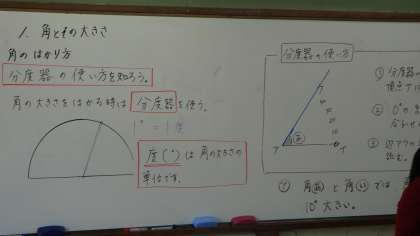 1. 角とその大きさ
角のはかり方
分度器の使い方を知ろう。
角の大きさをはかる時は 分度器 を使う。
1°=1度
度(°)は角の大きさの
単位です。
分度器の使い方
ア
イ
① 分度器
頂点アに
② 0°の
合わせ
③
読む。
と角
では、
10°大きい。